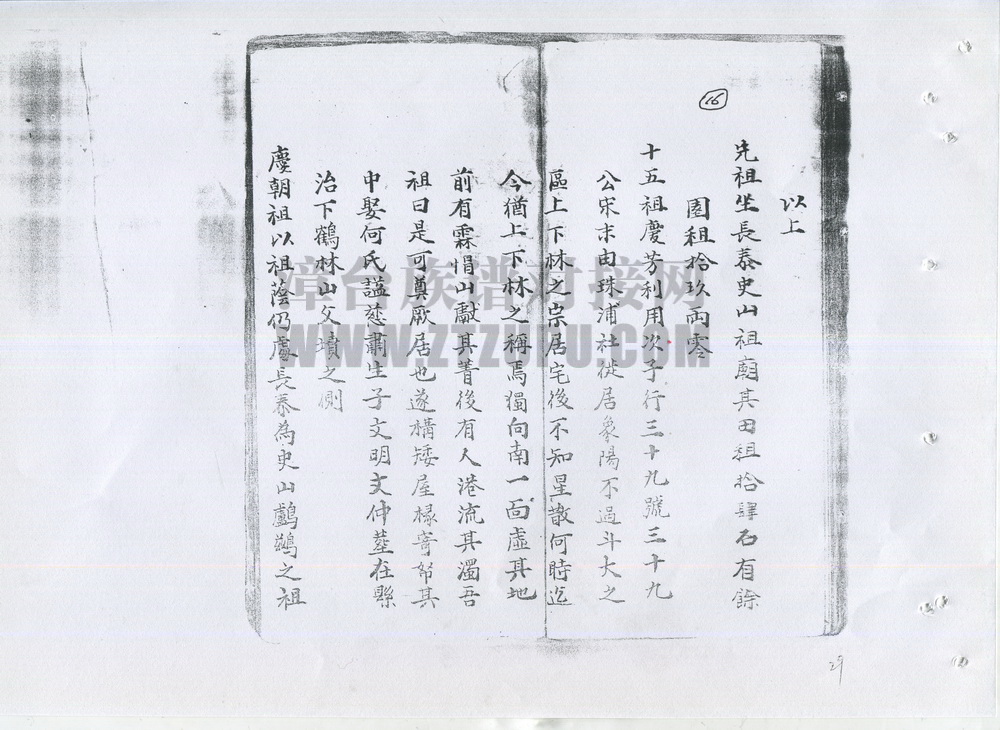 以上
先祖坐長泰史山祖廟其田租拾肆石有餘
園租拾玖兩零
十五祖慶芳利用次子行三十九號三十九
公宋末由珠浦社徙居象陽不過斗大之
區上下林之宗居宅後不知星散何時迄
今猶上下林之稱焉獨向南一面虛其地
前有霖悁山獻其菁後有人港流其濁吾
祖曰是可奠厥居也遂構矮屋椽寄帑其
中娶何氏謚慈肅生子文明文仲塟在縣
治下鶴林山父墳之側
慶朝祖以祖蔭仍處長泰為史山鷓鷀之祖
16
29
漳台族谱对接网
WWW.ZTZUPU.COM